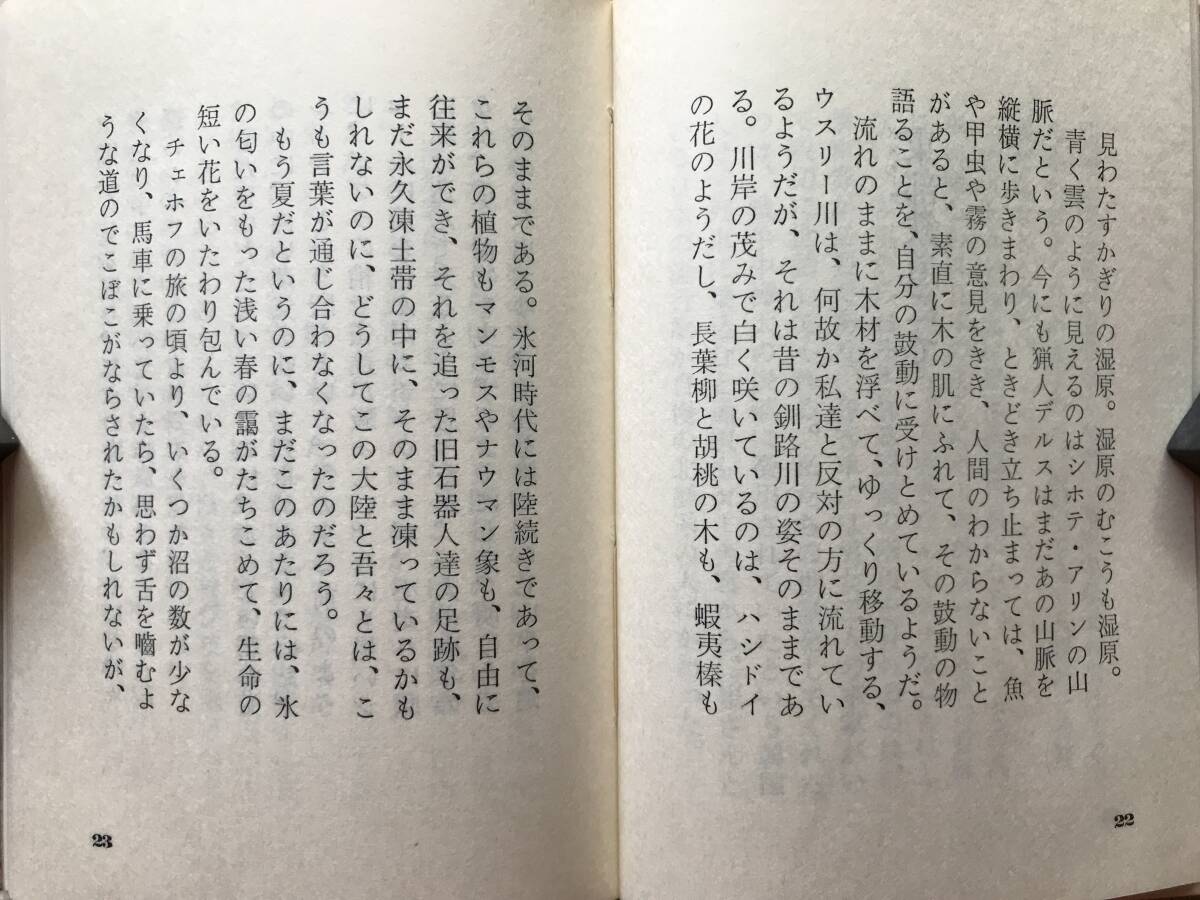 見わたすかぎりの湿原。湿原のむこうも湿原。
青く雲のように見えるのはシホテ・アリンの山
脈だという。今にも猟人デルスはまだあの山脈を
縦横に歩きまわり、ときどき立ち止まっては、魚
や甲虫や霧の意見をきき、人間のわからないこと
があると、素直に木の肌にふれて、その鼓動の物
語ることを、自分の鼓動に受けとめているようだ。
流れのままに木材を浮べて、ゆっくり移動する、
ウスリー川は、何故か私達と反対の方に流れてい
るようだが、それは昔の釧路川の姿そのままであ
る。川岸の茂みで白く咲いているのは、ハシドイ
の花のようだし、長葉柳と胡桃の木も、蝦夷榛も
22
そのままである。氷河時代には陸続きであって、
これらの植物もマンモスやナウマン象も、自由に
往来ができ、それを追った旧石器人達の足跡も、
まだ永久凍土帯の中に、そのまま凍っているかも
しれないのに、どうしてこの大陸と吾々とは、こ
うも言葉が通じ合わなくなったのだろう。
もう夏だというのに、まだこのあたりには、氷
の匂いをもった浅い春の靄がたちこめて、生命の
短い花をいたわり包んでいる。
チェホフの旅の頃より、いくつか沼の数が少な
くなり、馬車に乗っていたら、思わず舌を嚙むよ
うな道のでこぼこがならされたかもしれないが、
23